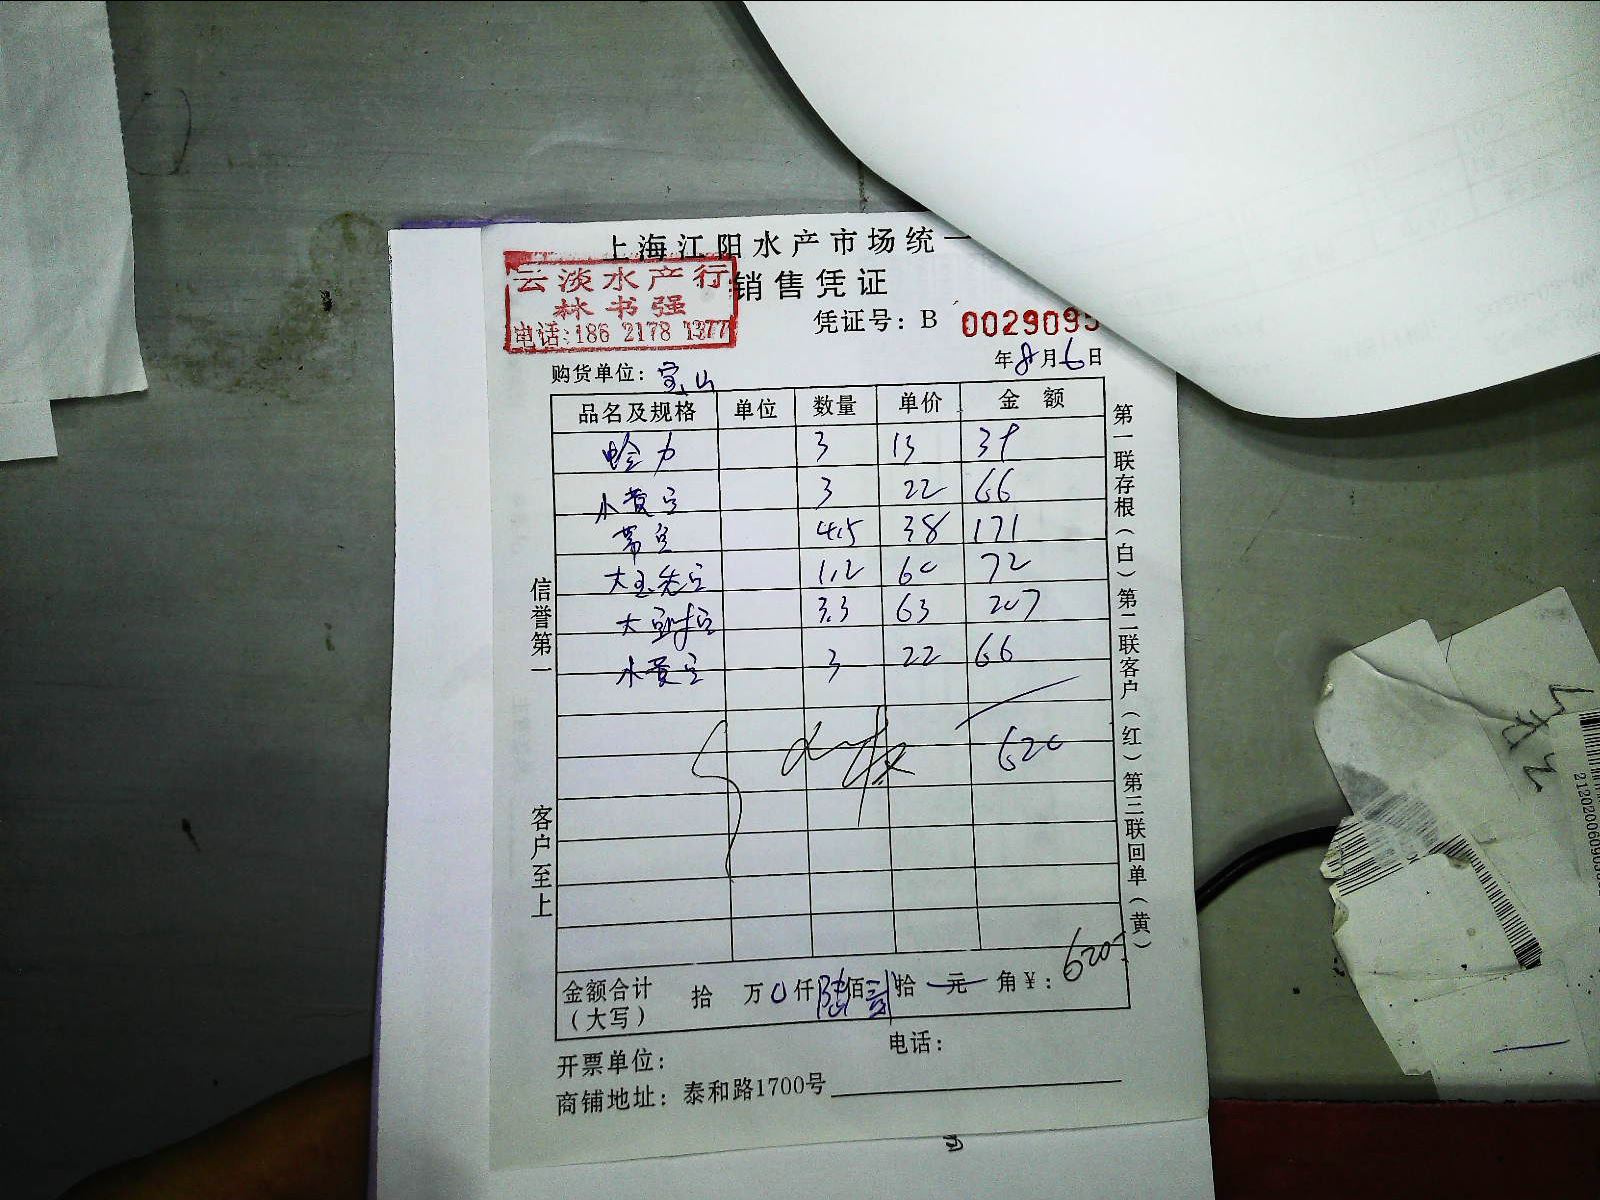 上海江阳水产市场统一
销售凭证
云淡水产行
林书强
电话:186 2178 1377
凭证号：B 0029095
年8月6日
购货单位：宝山
品名及规格 单位 数量 单价 金 额
蛤力 3 13 39
小黄 3 22 66
4.5 38 171
1.2 60 72
大 3.3 63 207
小黄 3 22 66
620
金额合计（大写） 拾 万 0 仟 陆 佰 贰 拾 元 角 ¥：620
开票单位：
电话：
商铺地址：泰和路1700号
信誉第一 客户至上
第一联存根（白）第二联客户（红）第三联回单（黄）